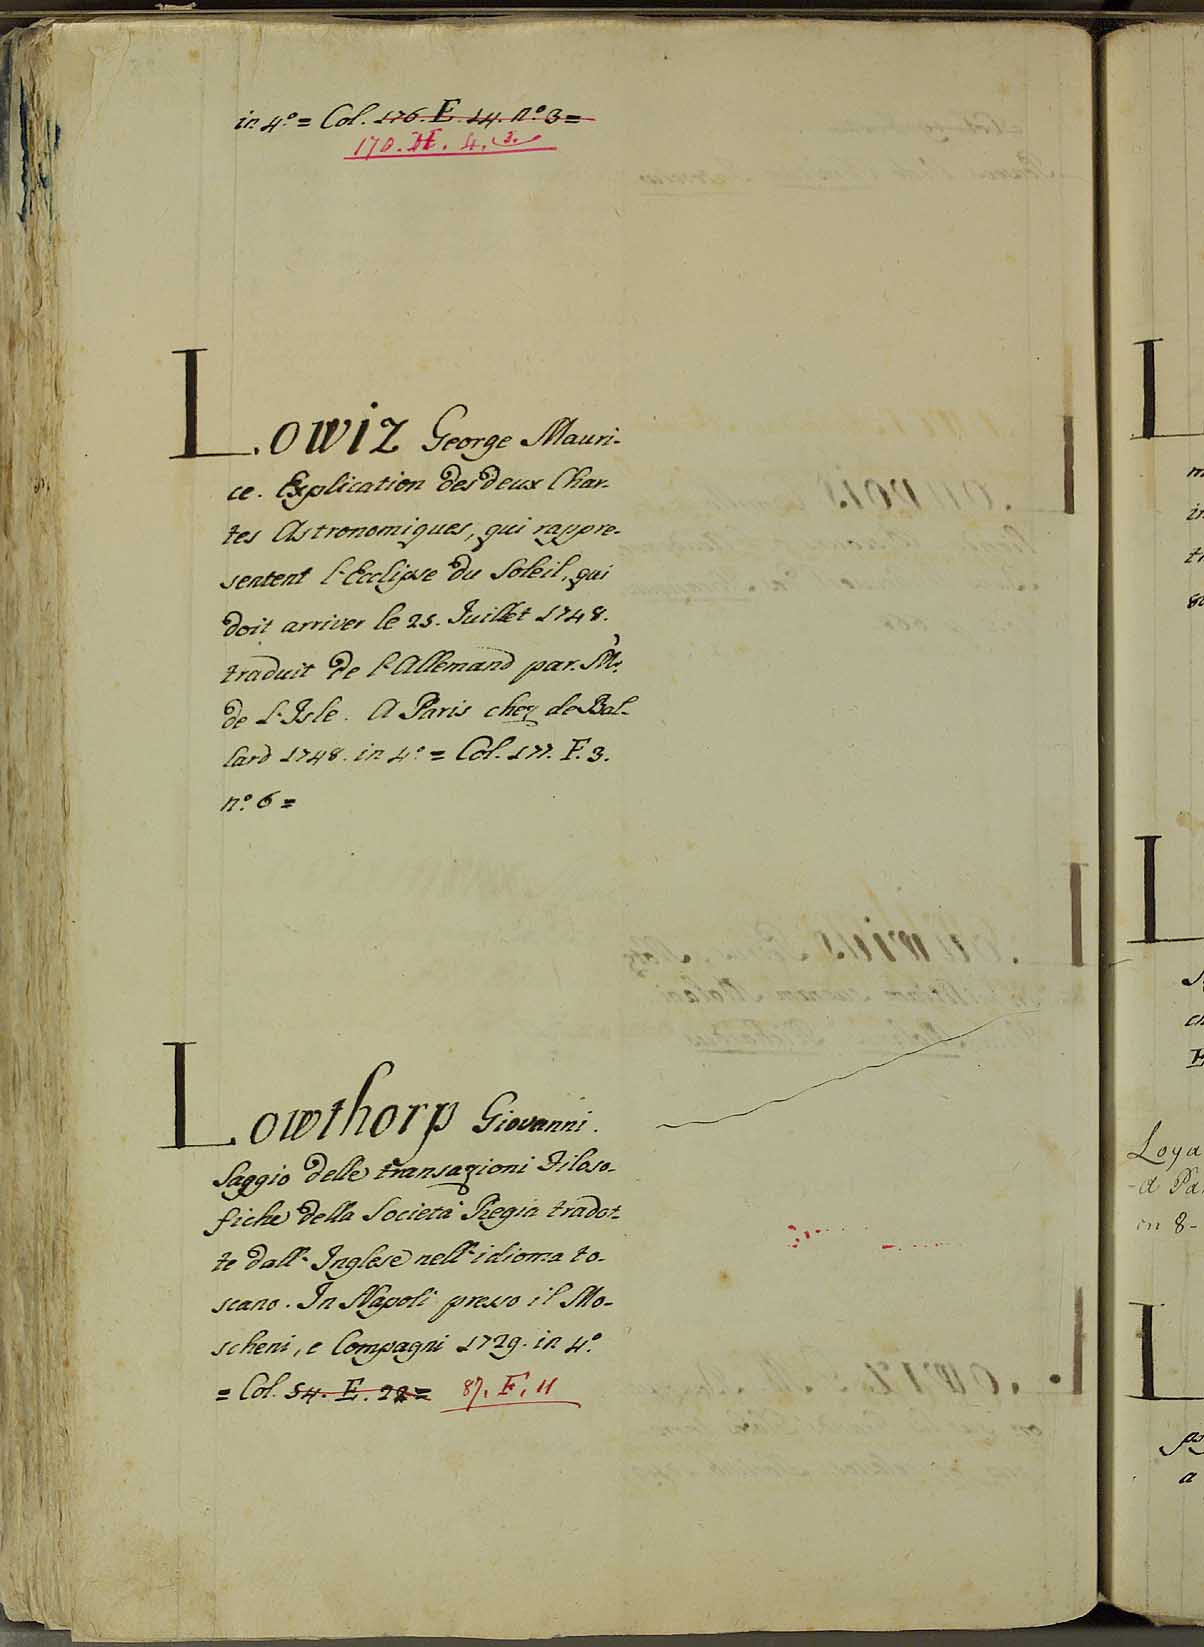 in 4.º = Col. 176. E. 14. n.º 3 =
170. H. 4. 3.
Lowiz George Mauri-
ce. Explication des deux Char-
tes Astronomiques, qui rappre-
sentent l'Ecclipse du Soleil, qui
doit arriver le 25. Juillet 1748.
traduit de l'Allemand par M.r
de l'Isle. A Paris chez de Bal-
lard 1748. in 4.º = Col. 177. F. 3.
n.º 6 =
Lowthorp Giovanni.
Saggio delle transazioni Filoso-
fiche della Società Regia tradot-
te dall'Inglese nell'idioma to-
scano. In Napoli presso il Mo-
scheni, e Compagni 1729. in 4.º
= Col. 54. E. 22 = 87. F. 11
L
L
Loya
a Pa
in 8-
L